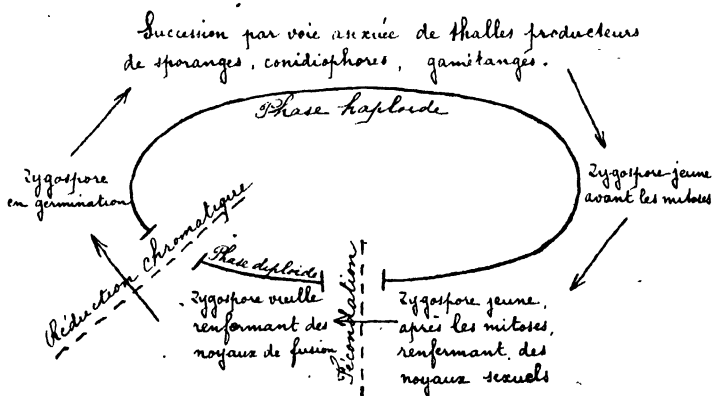 Succession par voie asexuée de thalles producteurs
de sporanges, conidiophores, gamétanges.
Phase haploide
Zygospore
en germination
Zygospore jeune
avant les mitoses
Réduction chromatique
Phase diploide
Fécondation
Zygospore vieille
renfermant des
noyaux de fusion
Zygospore jeune,
après les mitoses,
renfermant des
noyaux sexuels